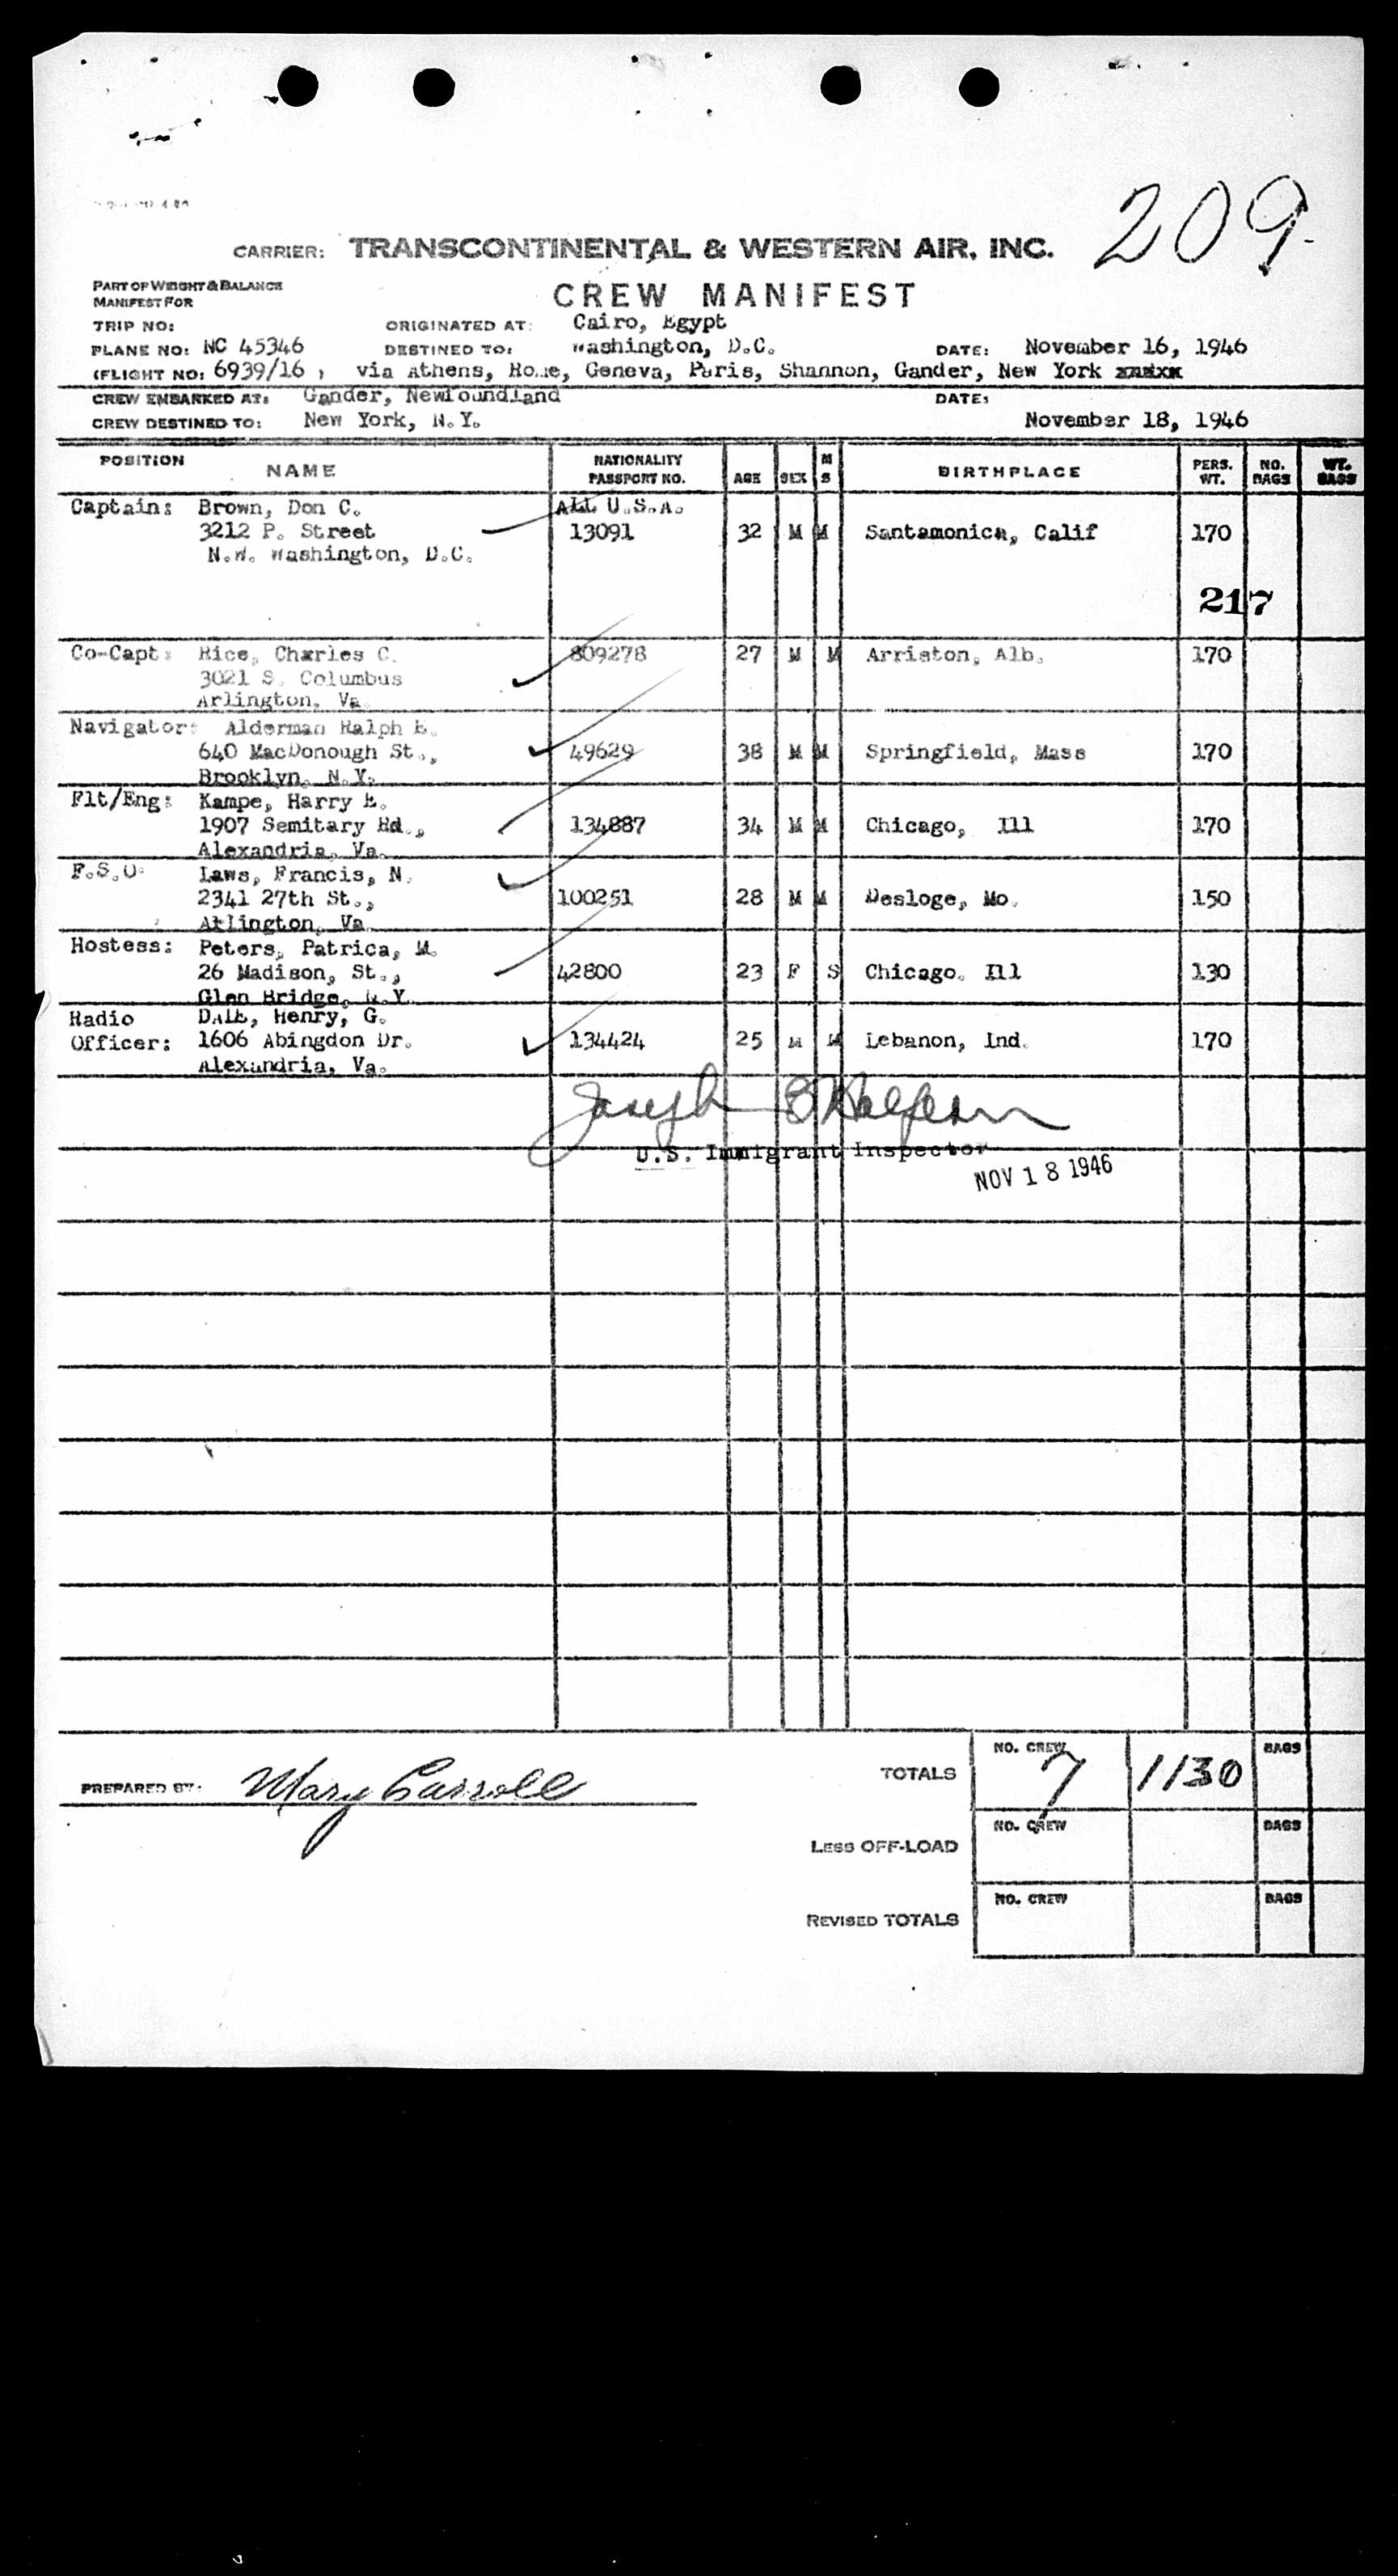 209.
CARRIER: TRANSCONTINENTAL & WESTERN AIR, INC.
PART OF WEIGHT & BALANCE
MANIFEST FOR
CREW MANIFEST
TRIP NO: ORIGINATED AT: Cairo, Egypt
PLANE NO: NC 45346 DESTINED TO: Washington, D.C. DATE: November 16, 1946
(FLIGHT NO: 6939/16 , via Athens, Rome, Geneva, Paris, Shannon, Gander, New York
CREW EMBARKED AT: Gander, Newfoundland DATE:
CREW DESTINED TO: New York, N.Y. November 18, 1946
POSITION NAME NATIONALITY PASSPORT NO. AGE SEX M S BIRTHPLACE PERS. WT. NO. BAGS WT. BAGS
Captain: Brown, Don C. ALL U.S.A.
3212 P. Street 13091 32 M M Santamonica, Calif 170
N.W. Washington, D.C.
217
Co-Capt: Rice, Charles C. 809278 27 M M Arriston, Alb. 170
3021 S. Columbus
Arlington, Va.
Navigator: Alderman Ralph E.
640 MacDonough St., 49629 38 M M Springfield, Mass 170
Brooklyn, N.Y.
Flt/Eng: Kampe, Harry E.
1907 Semitary Rd., 134887 34 M M Chicago, Ill 170
Alexandria, Va.
F.S.O: Laws, Francis, N.
2341 27th St., 100251 28 M M Desloge, Mo. 150
Arlington, Va.
Hostess: Peters, Patrica, M.
26 Madison, St., 42800 23 F S Chicago. Ill 130
Glen Bridge, N.Y.
Radio DALE, Henry, G.
Officer: 1606 Abingdon Dr. 134424 25 M M Lebanon, Ind. 170
Alexandria, Va.
Joseph E Halpern
U.S. Immigrant Inspector
NOV 18 1946
PREPARED BY: Mary Carroll TOTALS NO. CREW 7 1130 BAGS
LESS OFF-LOAD NO. CREW BAGS
REVISED TOTALS NO. CREW BAGS